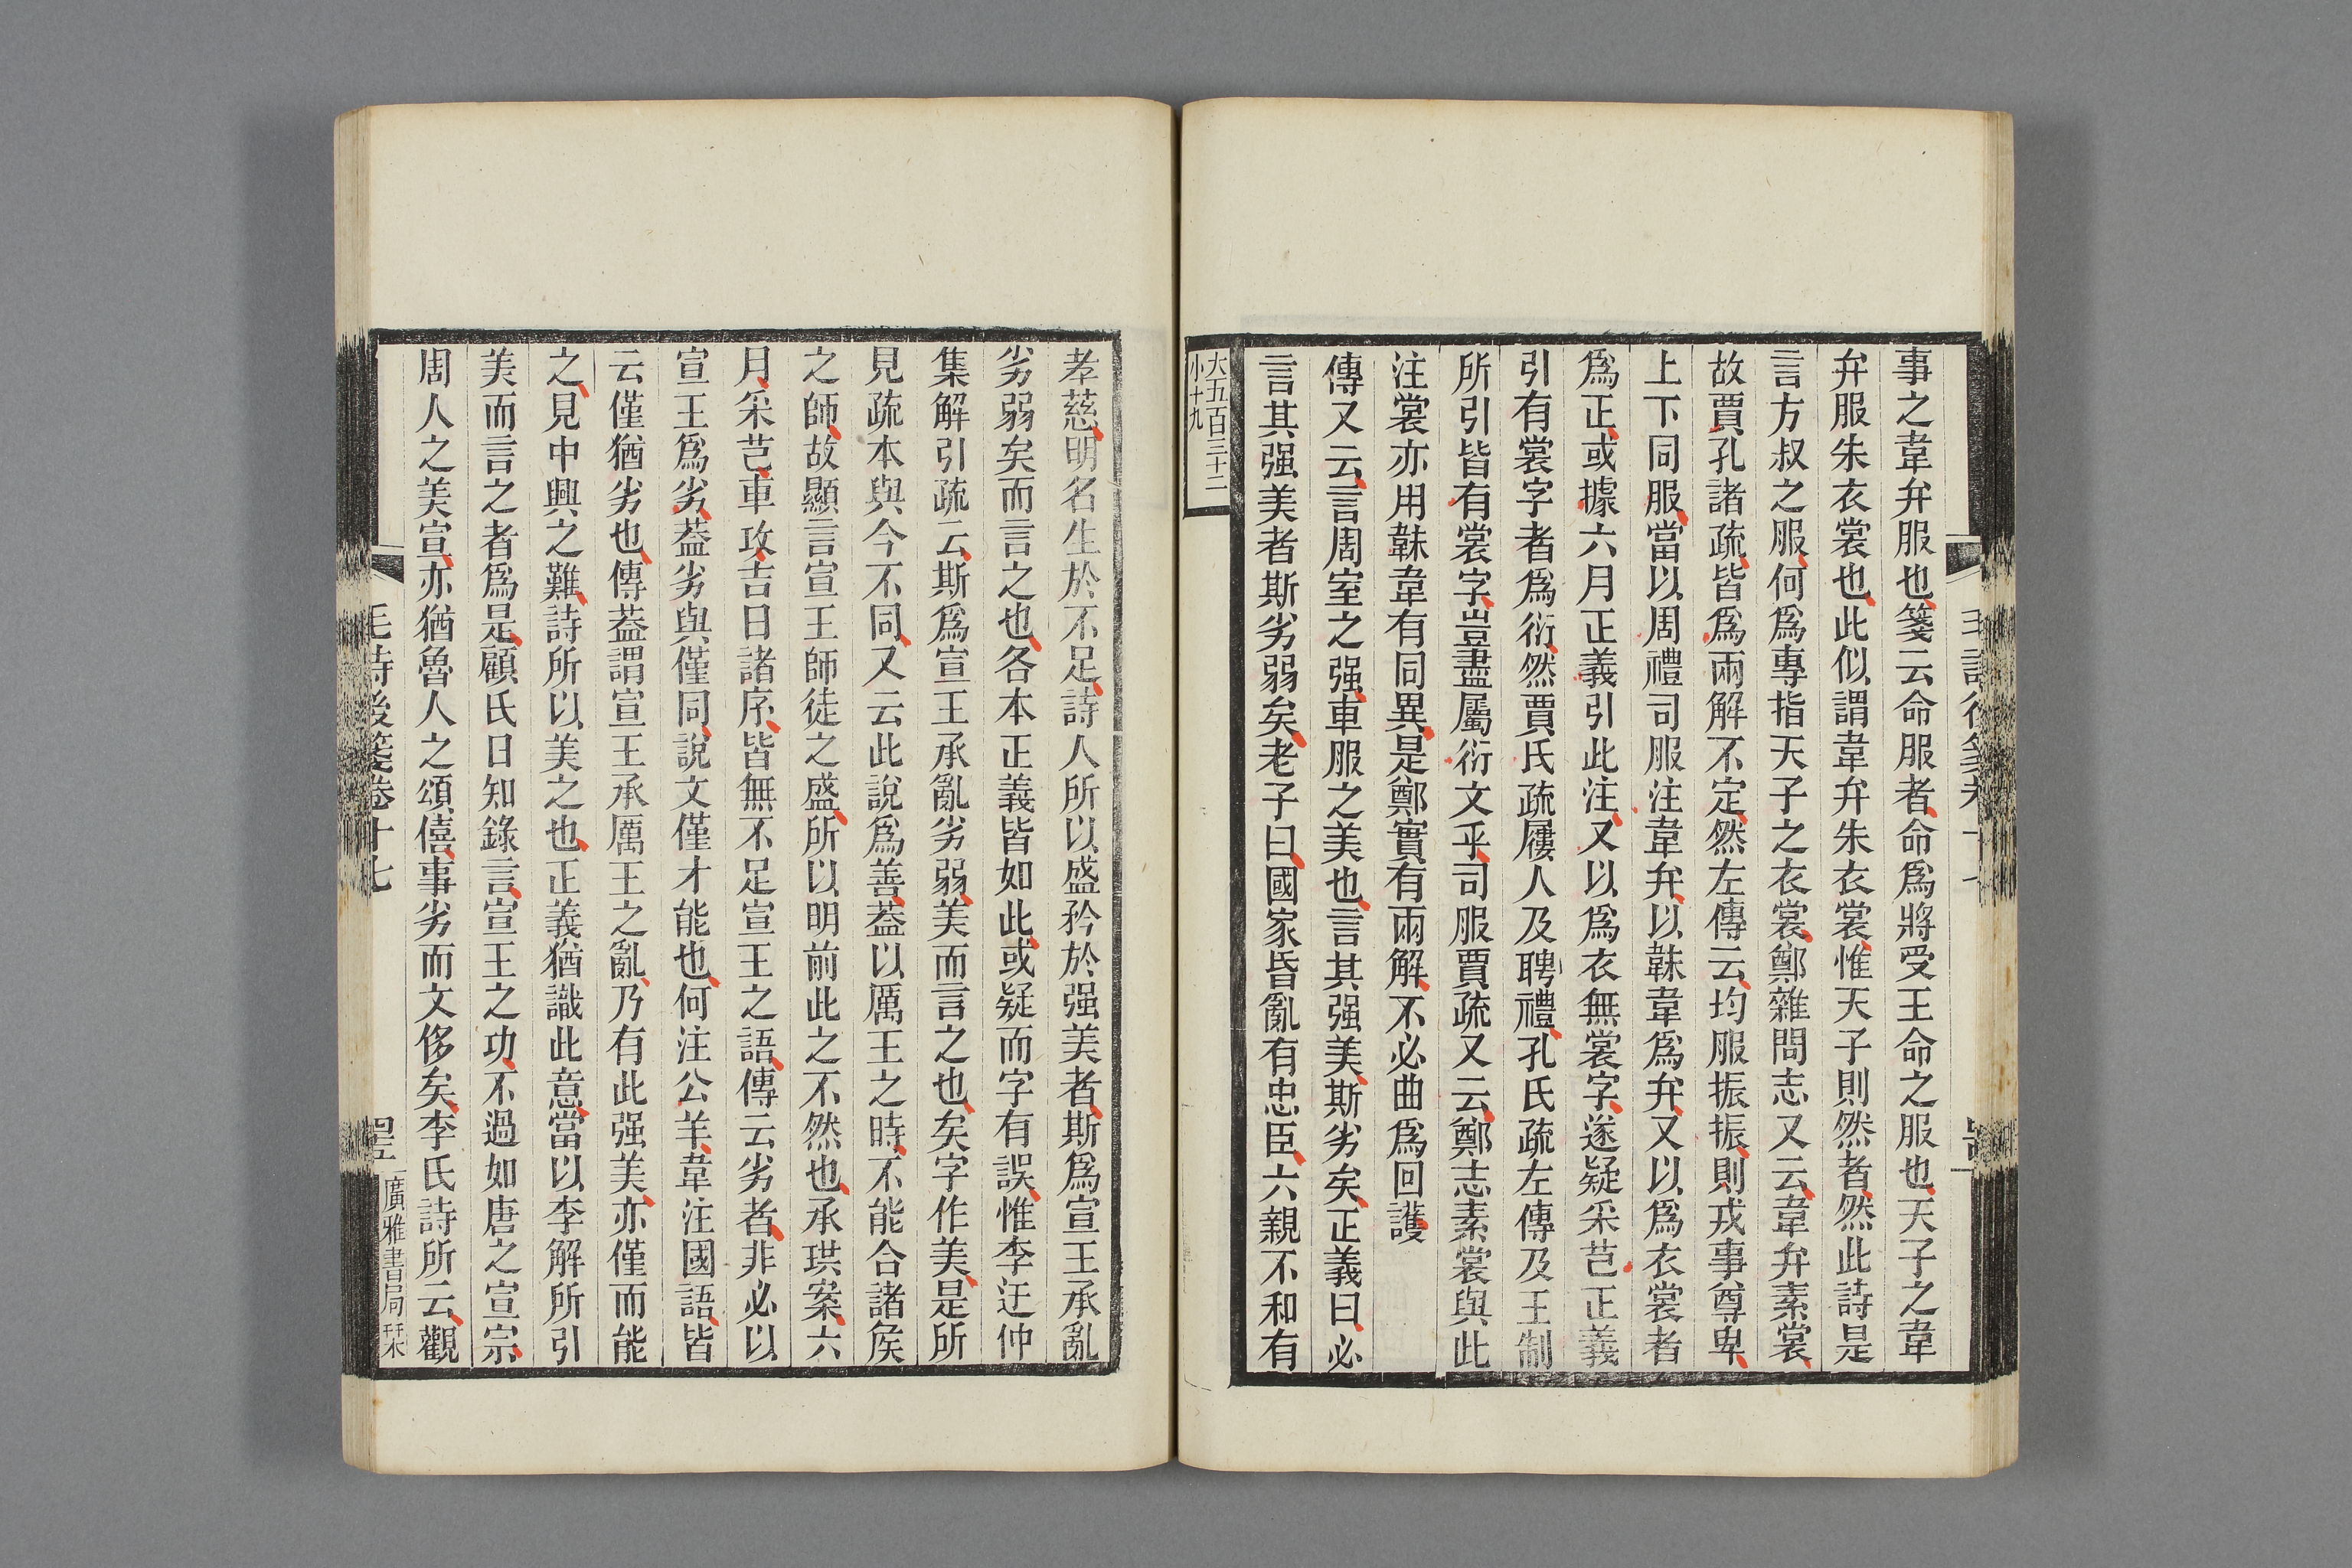 事之韋弁服也箋云命服者命爲將受王命之服也天子之韋
弁服朱衣裳也此似謂韋弁朱衣裳惟天子則然者然此詩是
言方叔之服何爲專指天子之衣裳鄭雜問志又云韋弁素裳
故賈孔諸疏皆爲兩解不定然左傳云均服振振則戎事尊卑
上下同服當以周禮司服注韋弁以韎韋爲弁又以爲衣裳者
爲正或據六月正義引此注又以爲衣無裳字遂疑采芑正義
引有裳字者爲衍然賈氏疏屨人及聘禮孔氏疏左傳及王制
所引皆有裳字豈盡屬衍文乎司服賈疏又云鄭志素裳與此
注裳亦用韎韋有同異是鄭實有兩解不必曲爲回護
傳又云言周室之强車服之美也言其强美斯劣矣正義曰必
言其强美者斯劣弱矣老子曰國家昏亂有忠臣六親不和有
大五百三十二
小十九
孝慈明名生於不足詩人所以盛矜於强美者斯爲宣王承亂
劣弱矣而言之也各本正義皆如此或疑而字有誤惟李迂仲
集解引疏云斯爲宣王承亂劣弱美而言之也矣字作美是所
見疏本與今不同又云此說爲善葢以厲王之時不能合諸矦
之師故顯言宣王師徒之盛所以明前此之不然也承珙案六
月采芑車攻吉日諸序皆無不足宣王之語傳云劣者非必以
宣王爲劣葢劣與僅同說文僅才能也何注公羊韋注國語皆
云僅猶劣也傳葢謂宣王承厲王之亂乃有此强美亦僅而能
之見中興之難詩所以美之也正義猶識此意當以李解所引
美而言之者爲是顧氏日知錄言宣王之功不過如唐之宣宗
周人之美宣亦猶魯人之頌僖事劣而文侈矣李氏詩所云觀
毛詩後箋卷十七
廣雅書局栞